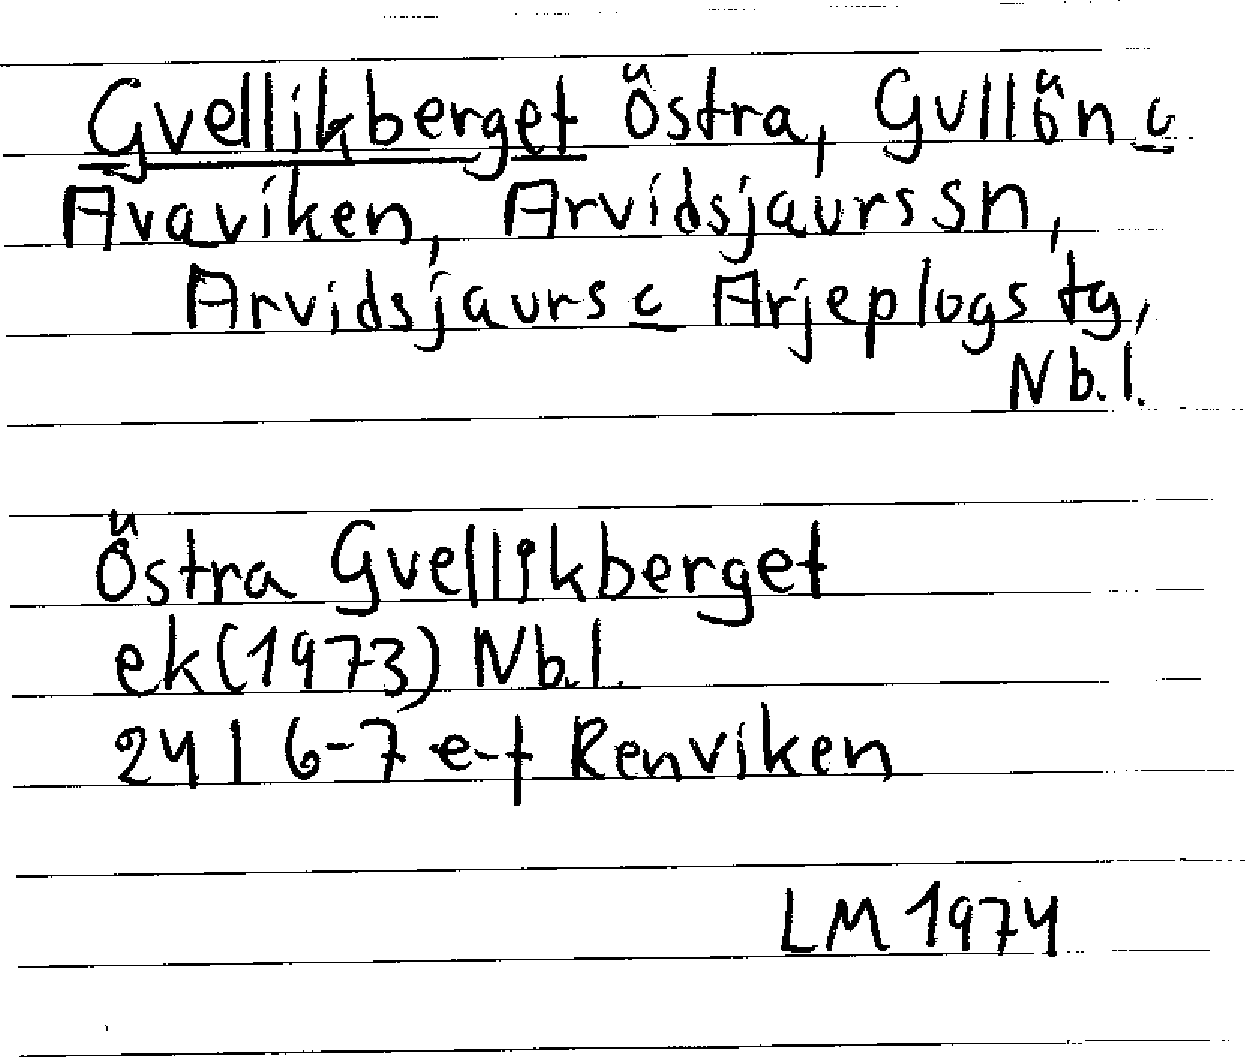 Gvellikberget Östra, Gullön c
Avaviken, Arvidsjaurs sn,
Arvidsjaurs c Arjeplogs tg,
Nb.l.
Östra Gvellikberget
ek (1973) Nb.l.
24 I 6-7 e-f Renviken
LM 1974